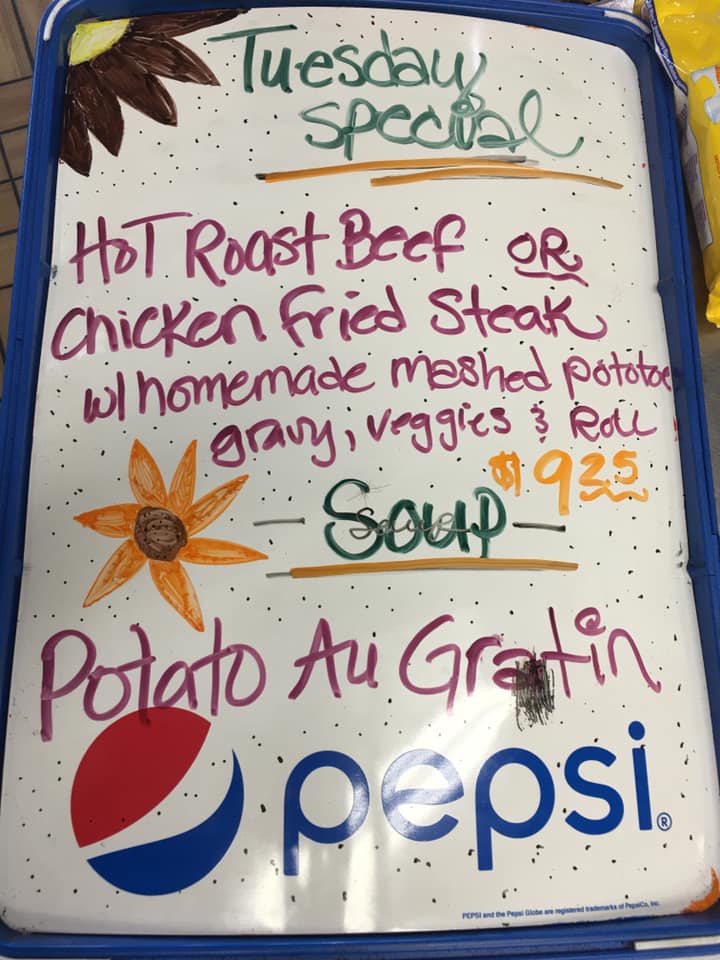 Tuesday
Special
Hot Roast Beef OR
Chicken fried Steak
w/homemade mashed pototoe
gravy, veggies & Roll
$9.25
Soup
Potato Au Gratin
pepsi®
PEPSI and the Pepsi Globe are registered trademarks of PepsiCo, Inc.